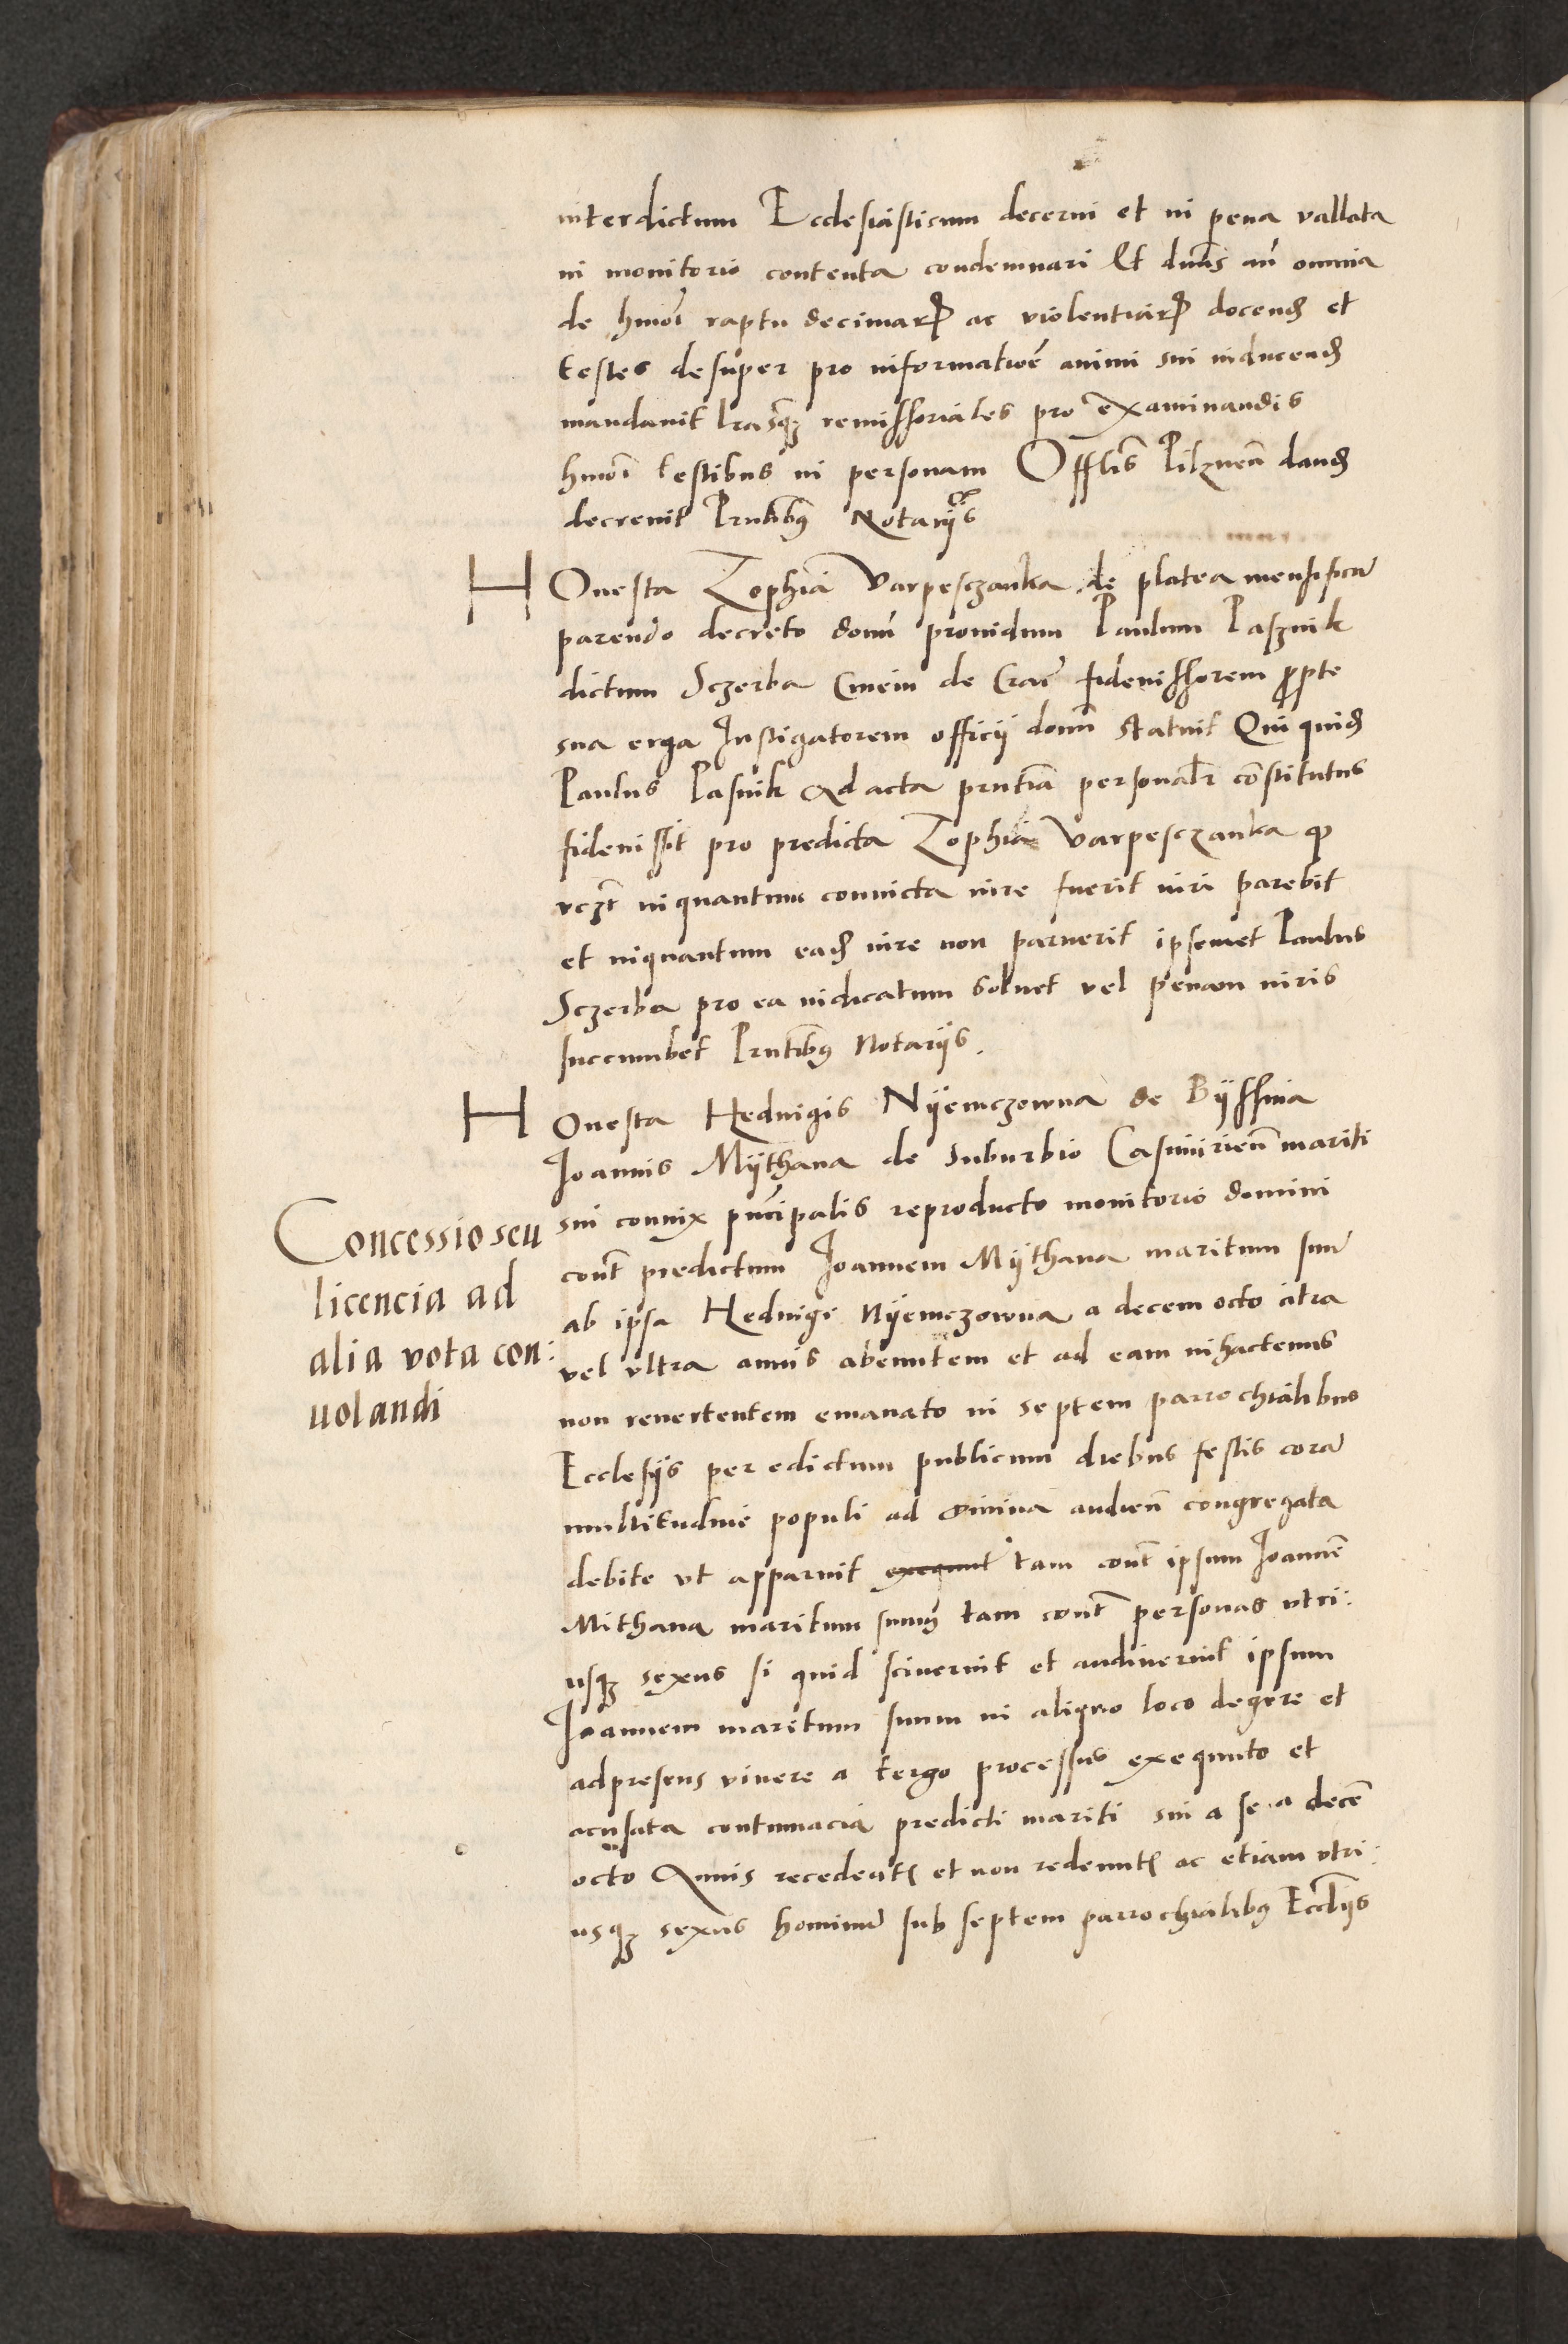 interdictum Ecclesiasticum decerni et in pena vallata
in monitorio contenta condemnari Et dnus an̄ omnia
de hmōi raptu decimarꝝ ac violentiarꝝ docend et
testes desuper pro informatiōe animi sui inducend
mandavit lrasqꝫ remissoriales pro examinandis
hmōi testibus in personam Offlis Pilznen̄ dand
decrevit Pntibꝫ Notariis
HOnesta Zophia Varpesczanka de platea mensificū
parendo decreto domī providum Paulum Pasznik
dictum Sczerba Civem de Crac̄ fideiussorem pro pte
sua erga Instigatorem officii domī statuit Qui quid
Paulus Pasnik Ad acta pntia personalr constitutus
fideiussit pro predicta Zophia Varpesczanka ꝙ
vczt inquantum convicta iure fuerit iuri parebit
et inquantum ead iure non paruerit ipsemet Paulus
Sczerba pro ea iudicatum solvet vel penam iuris
succumbet Pntibꝫ Notariis.
HOnesta Hedvigis Nÿemczowna de Bÿssina
Joannis Mÿthana de suburbio Casimirien̄ mariti
Concessio seu
licencia ad
alia vota con:
uolandi
sui coniux pncipalis reproducto monitorio domini
cont predictum Joannem Mÿthana maritum suū
ab ipsa Hedvige Nÿemczowna a decem octo citra
vel ultra annis abeuntem et ad eam inhactenus
non revertentem emanato in septem parrochialibus
Ecclesiis per edictum publicum diebus festis corā
multitudine populi ad divina audien̄ congregata
debite ut apparuit exequut tam cont ipsum Joannē
Mithana maritum suum qꝫ tam cont personas utri:
usqꝫ sexus si quid sciverint et audiverint ipsum
Joannem maritum suum in aliquo loco degere et
adpresens vivere a tergo processus exequuto et
acusata contumacia predicti mariti sui a se a decē
octo Annis recedent et non redeunt ac etiam utri:
usqꝫ sexus hominū sub septem parrochialibꝫ Eccliis